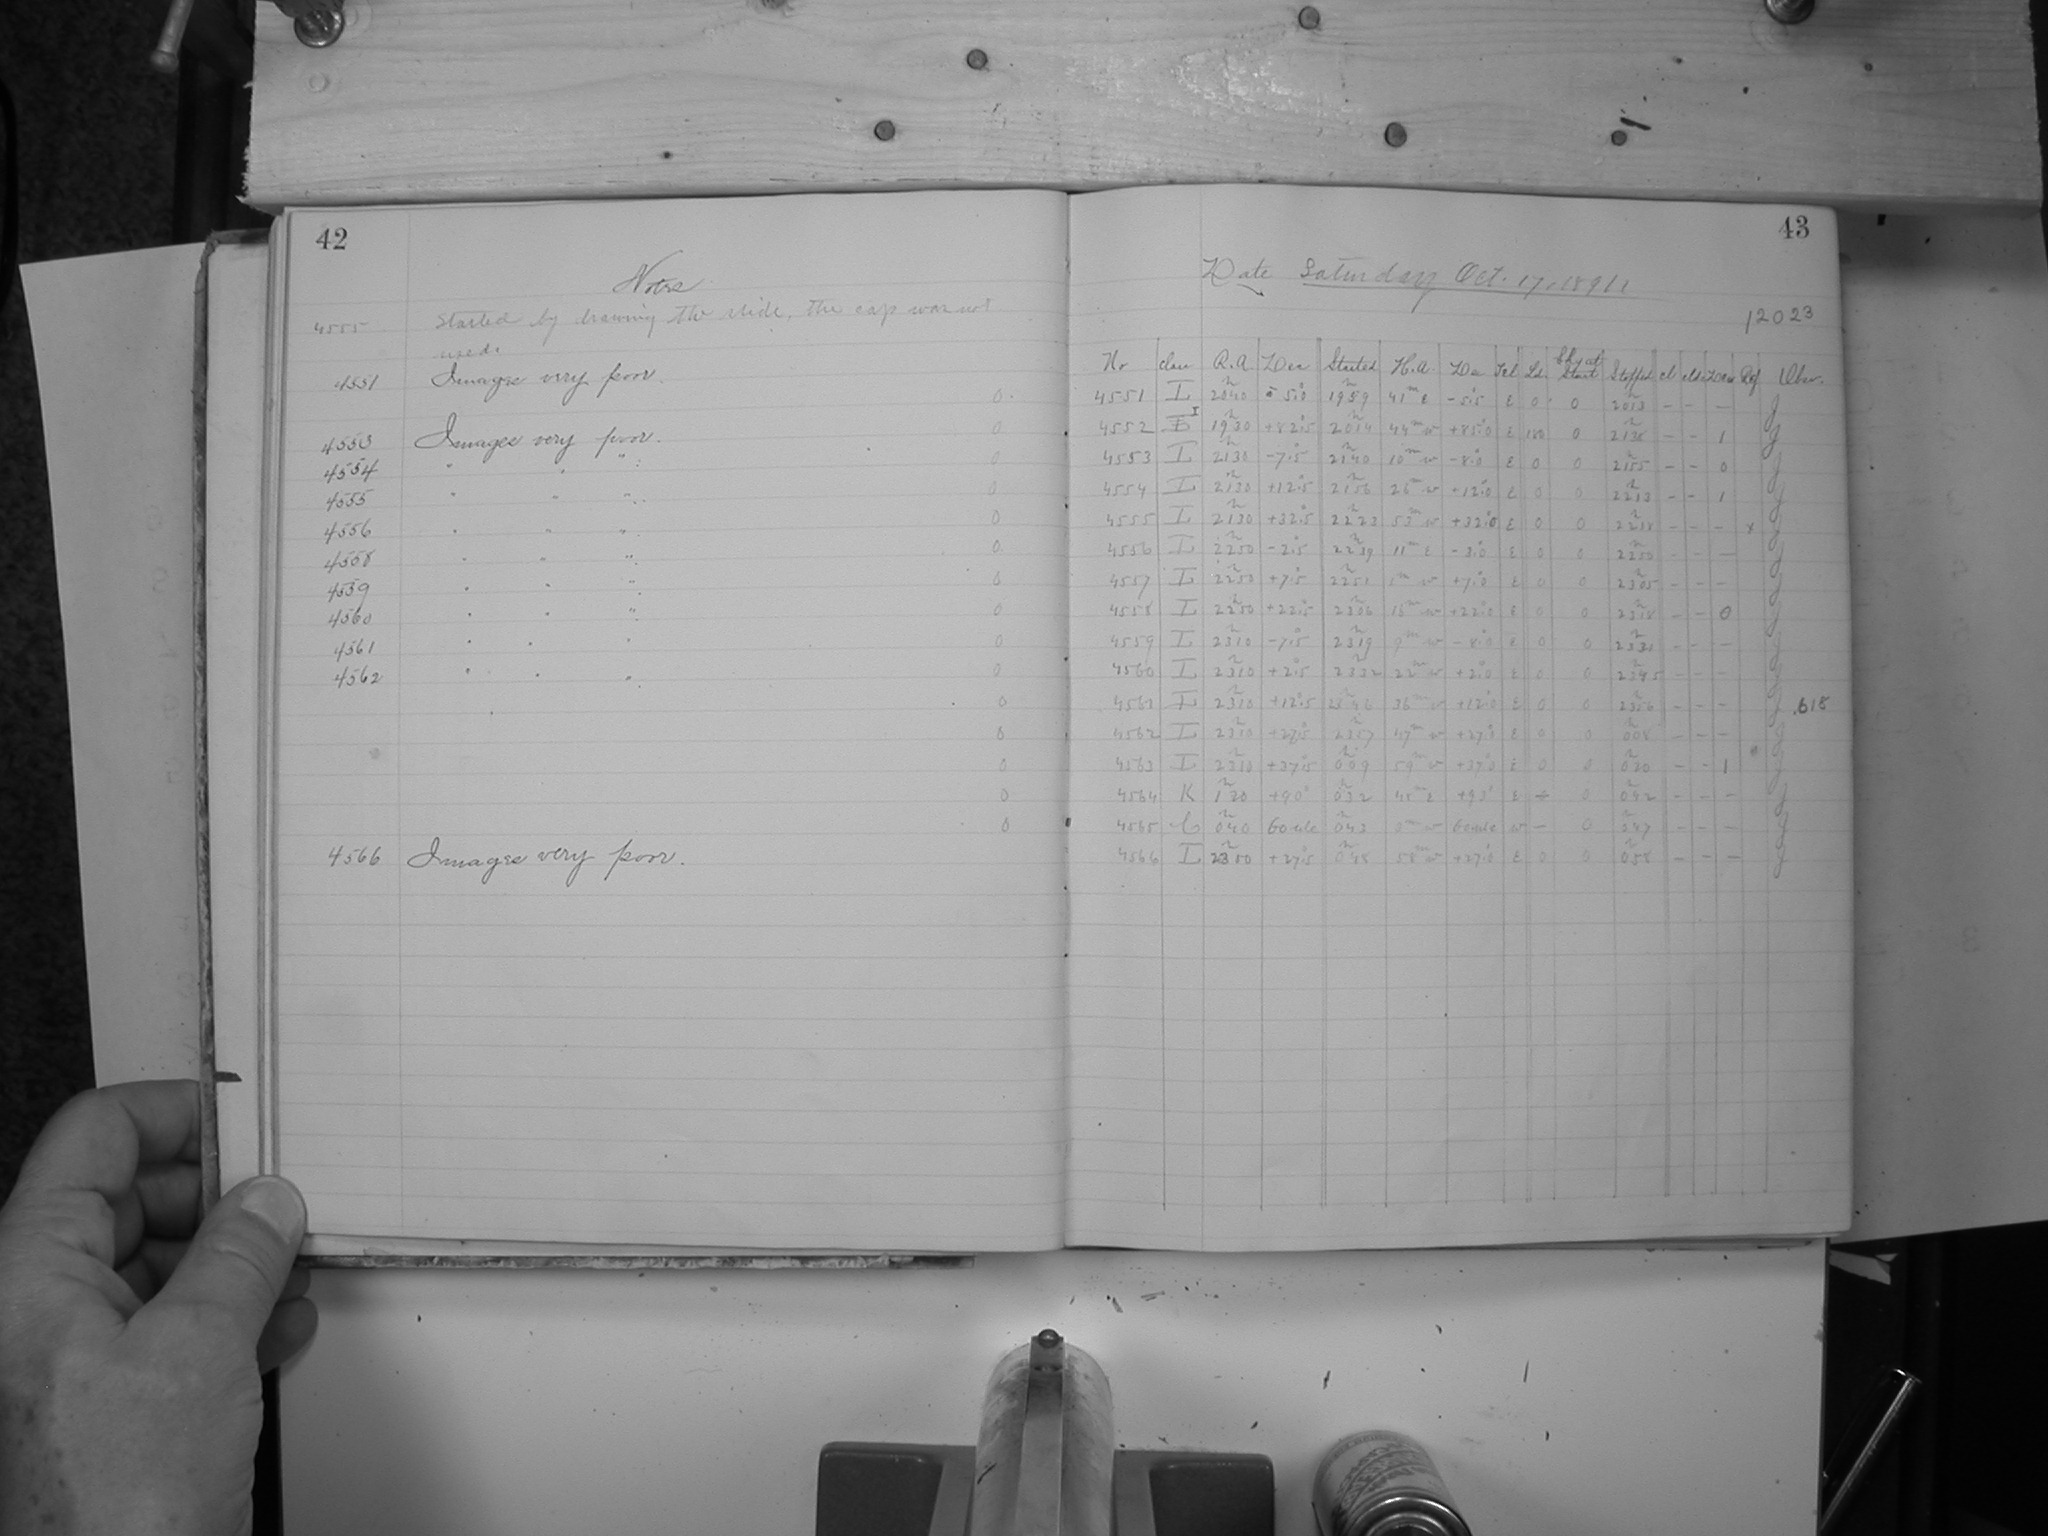 42
Notes
4555 Started by drawing the slide, the cap was not
used.
4551 Images very poor.
4553 Images very poor.
4554 " " "
4555 " " "
4556 " " "
4558 " " "
4559 " " "
4560 " " "
4561 " " "
4562 " " "
4566 Images very poor.
43
Date Saturday Oct. 17, 1891
12023
No Class R.A. Dec Started H.A. Dec Tel Ld. Sky at Start Stopped cl cld Dew Ref Obsr.
4551 L 20h40 -5°.0 19h59 41m E -5°.5 E 0 0 20h13 - - -
4552 19h30 +82°.5 44m w +85°.0 E 0 - - 1
4553 L 21h30 -7°.5 21h40 10m w -8°.0 E 0 0 21h55 - - 0
4554 L 21h30 +12°.5 21h56 26m w +12°.0 E 0 0 22h13 - - 1
4555 L 21h30 +32°.5 22h23 53m w +32°.0 E 0 0 - - - x
4556 L 22h50 -2°.5 22h39 11m E -3°.0 E 0 0 22h50 - - -
4557 L 22h50 +7°.5 22h51 1m w +7°.0 E 0 0 23h05 - - -
4558 L 22h50 +22°.5 23h06 16m w +22°.0 E 0 0 23h18 - - 0
4559 L 23h10 -7°.5 23h19 9m w -8°.0 E 0 0 23h31 - - -
4560 L 23h10 +2°.5 23h32 22m w +2°.0 E 0 0 23h45 - - -
4561 L 23h10 +12°.5 23h46 36m w +12°.0 E 0 0 23h56 - - - .618
4562 L 23h10 +27°.5 23h57 47m w +27°.0 E 0 0 0h08 - - -
4563 L 23h10 +37°.5 0h09 59m w +37°.0 E 0 0 - - 1
4564 K +90° 0h32 E 0 0h42 - - -
4565 0h40 Goule 0h43 w Goule w - 0 0h47 - - -
4566 L 23h50 +27°.5 0h48 58m w +27°.0 E 0 0 0h58 - - -